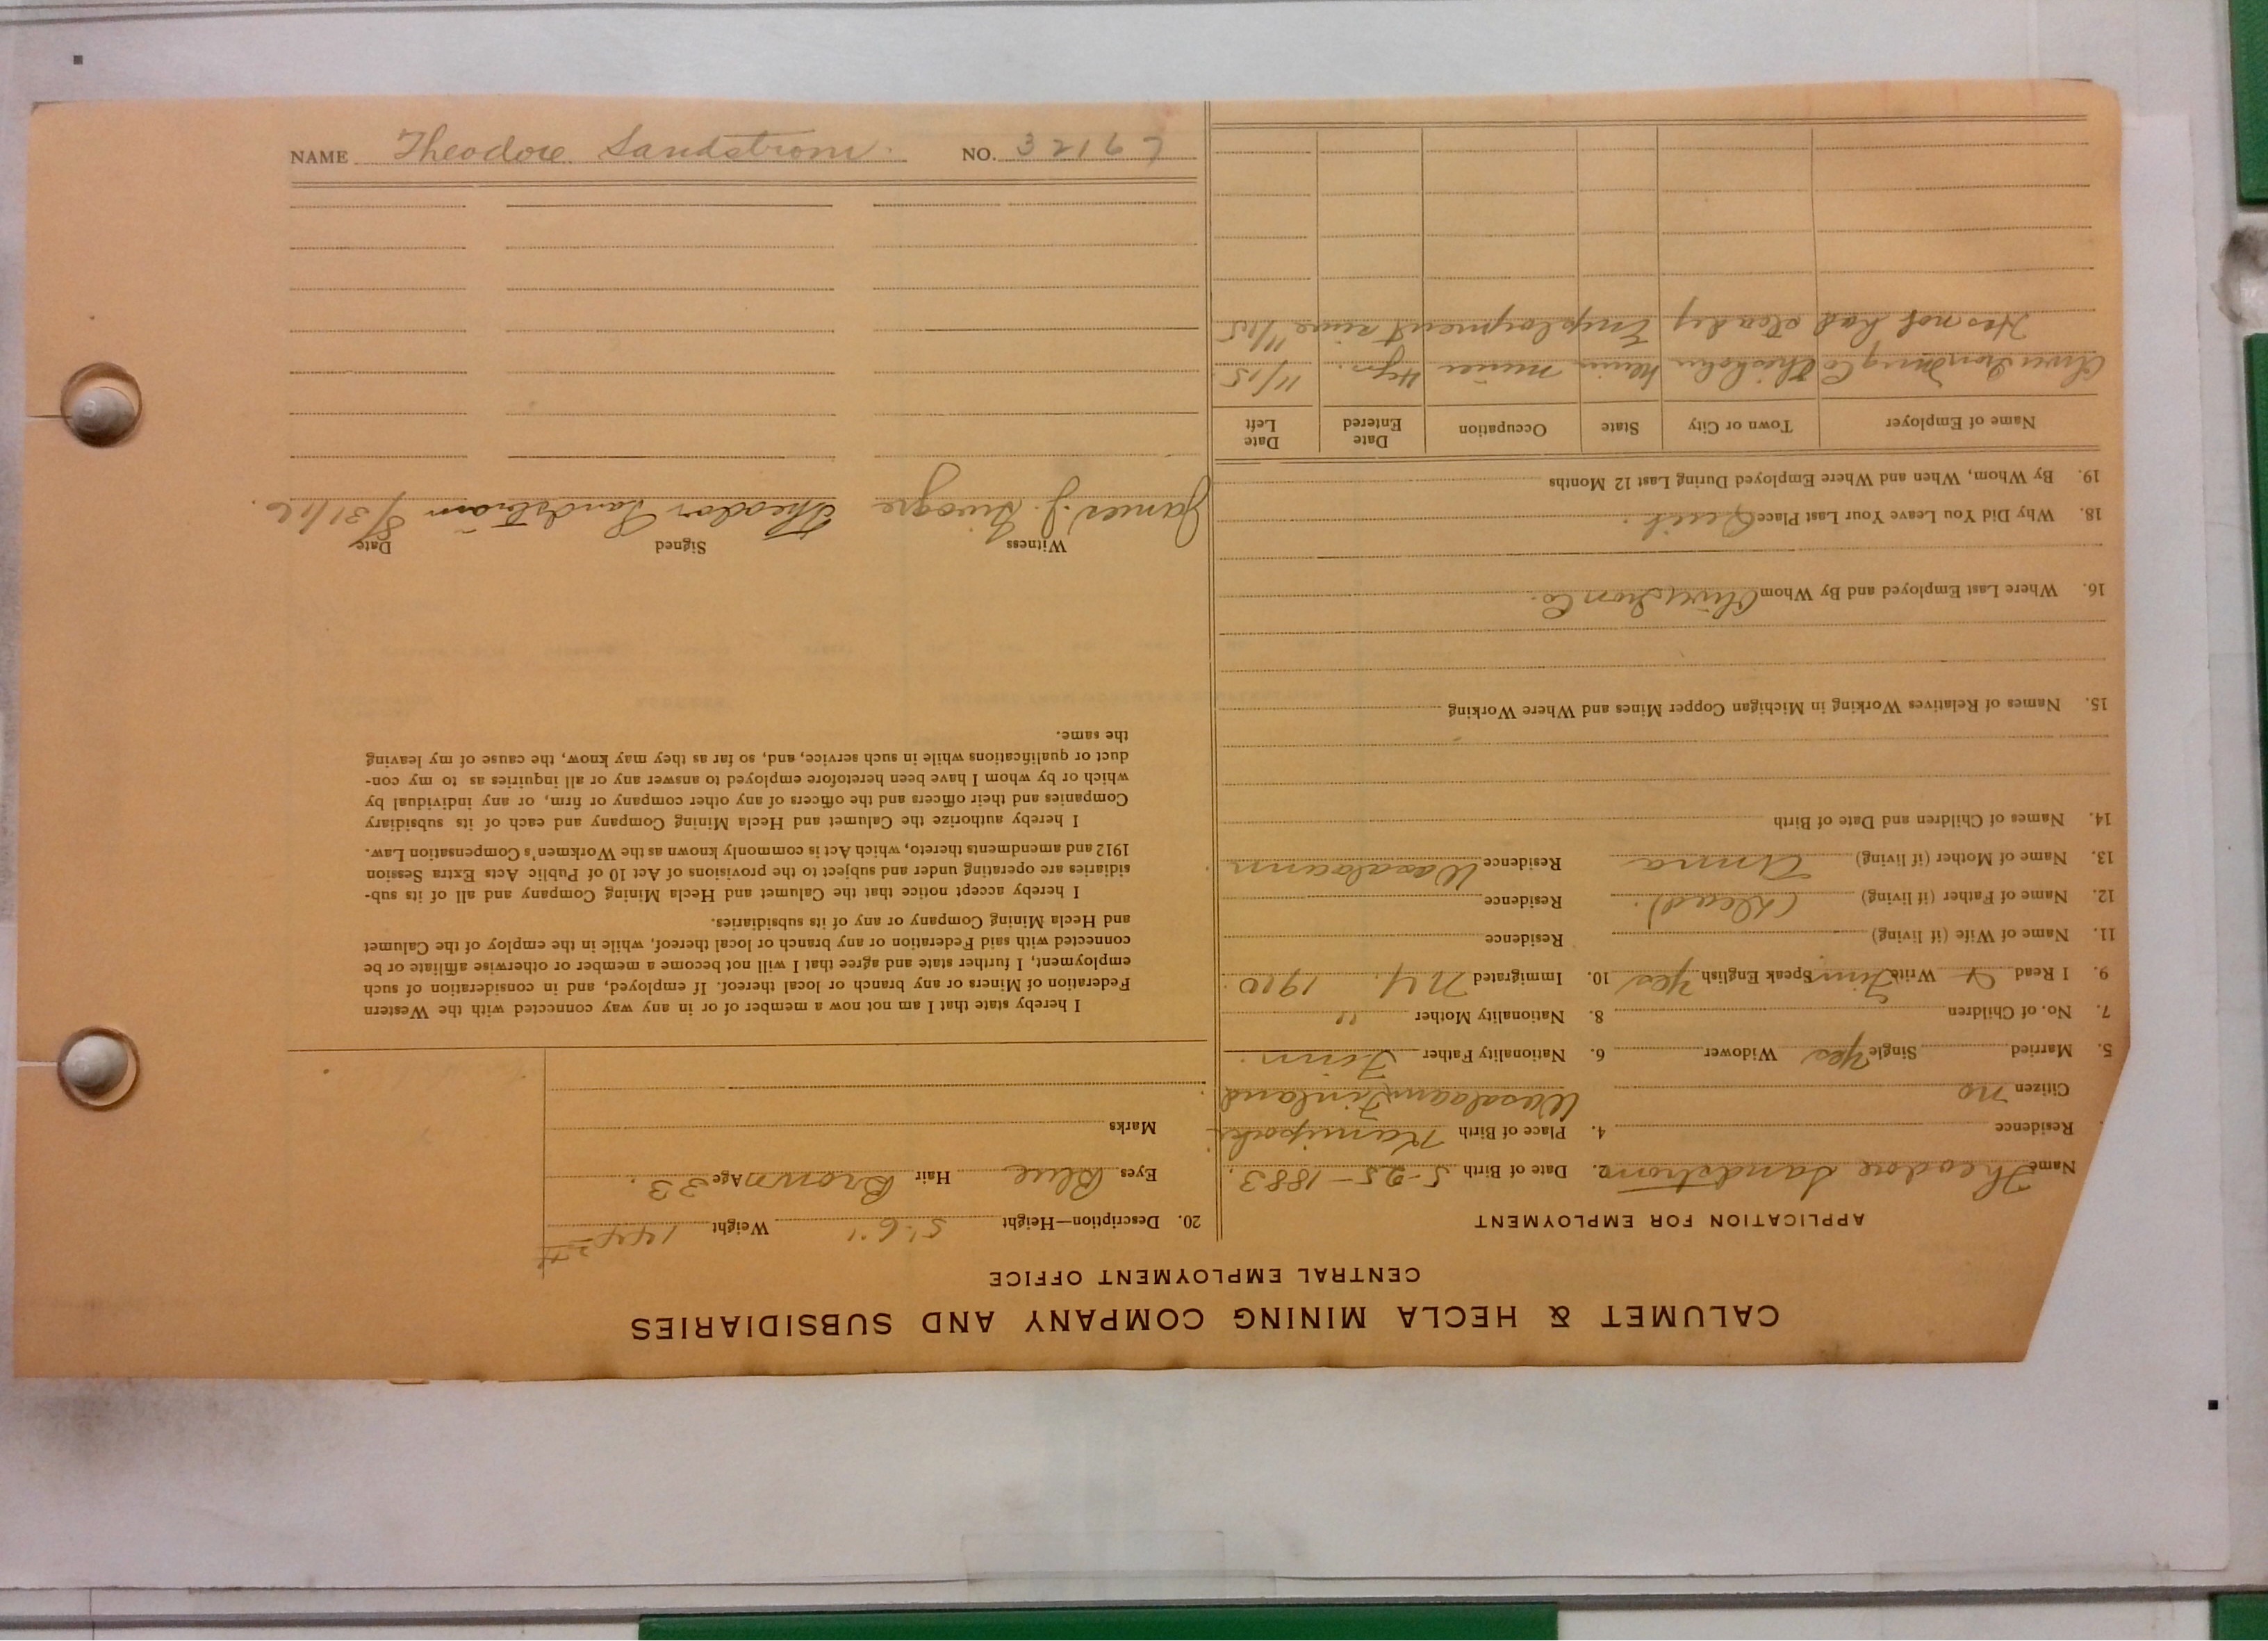 CALUMET & HECLA MINING COMPANY AND SUBSIDIARIES
CENTRAL EMPLOYMENT OFFICE
APPLICATION FOR EMPLOYMENT
Name Theodore Sandstrom 2. Date of Birth 5-25-1883.
Residence 4. Place of Birth
Citizen no Finland
5. Married Single Yes Widower 6. Nationality Father Finn.
7. No. of Children 8. Nationality Mother "
9. I Read & Write Finn. Speak English Yes 10. Immigrated N.Y. 1910.
11. Name of Wife (if living) Residence
12. Name of Father (if living) (Dead). Residence
13. Name of Mother (if living) Anna Residence Wasalaann
14. Names of Children and Date of Birth
15. Names of Relatives Working in Michigan Copper Mines and Where Working
16. Where Last Employed and By Whom Oliver Iron Co.
18. Why Did You Leave Your Last Place Quit.
19. By Whom, When and Where Employed During Last 12 Months
Name of Employer Town or City State Occupation Date Entered Date Left
Oliver Iron Mng Co Chisholm Minn miner 4 yrs. 11/15
Has not had steady Employment since 11/15
20. Description—Height 5'.6" Weight 144
Eyes Blue Hair Brown Age 33.
Marks
I hereby state that I am not now a member of or in any way connected with the Western
Federation of Miners or any branch or local thereof. If employed, and in consideration of such
employment, I further state and agree that I will not become a member or otherwise affiliate or be
connected with said Federation or any branch or local thereof, while in the employ of the Calumet
and Hecla Mining Company or any of its subsidiaries.
I hereby accept notice that the Calumet and Hecla Mining Company and all of its sub-
sidiaries are operating under and subject to the provisions of Act 10 of Public Acts Extra Session
1912 and amendments thereto, which Act is commonly known as the Workmen's Compensation Law.
I hereby authorize the Calumet and Hecla Mining Company and each of its subsidiary
Companies and their officers and the officers of any other company or firm, or any individual by
which or by whom I have been heretofore employed to answer any or all inquiries as to my con-
duct or qualifications while in such service, and, so far as they may know, the cause of my leaving
the same.
Witness Signed Date
James J. Theodor Sandström 8/31/16.
NAME Theodore Sandstrom. NO. 32167